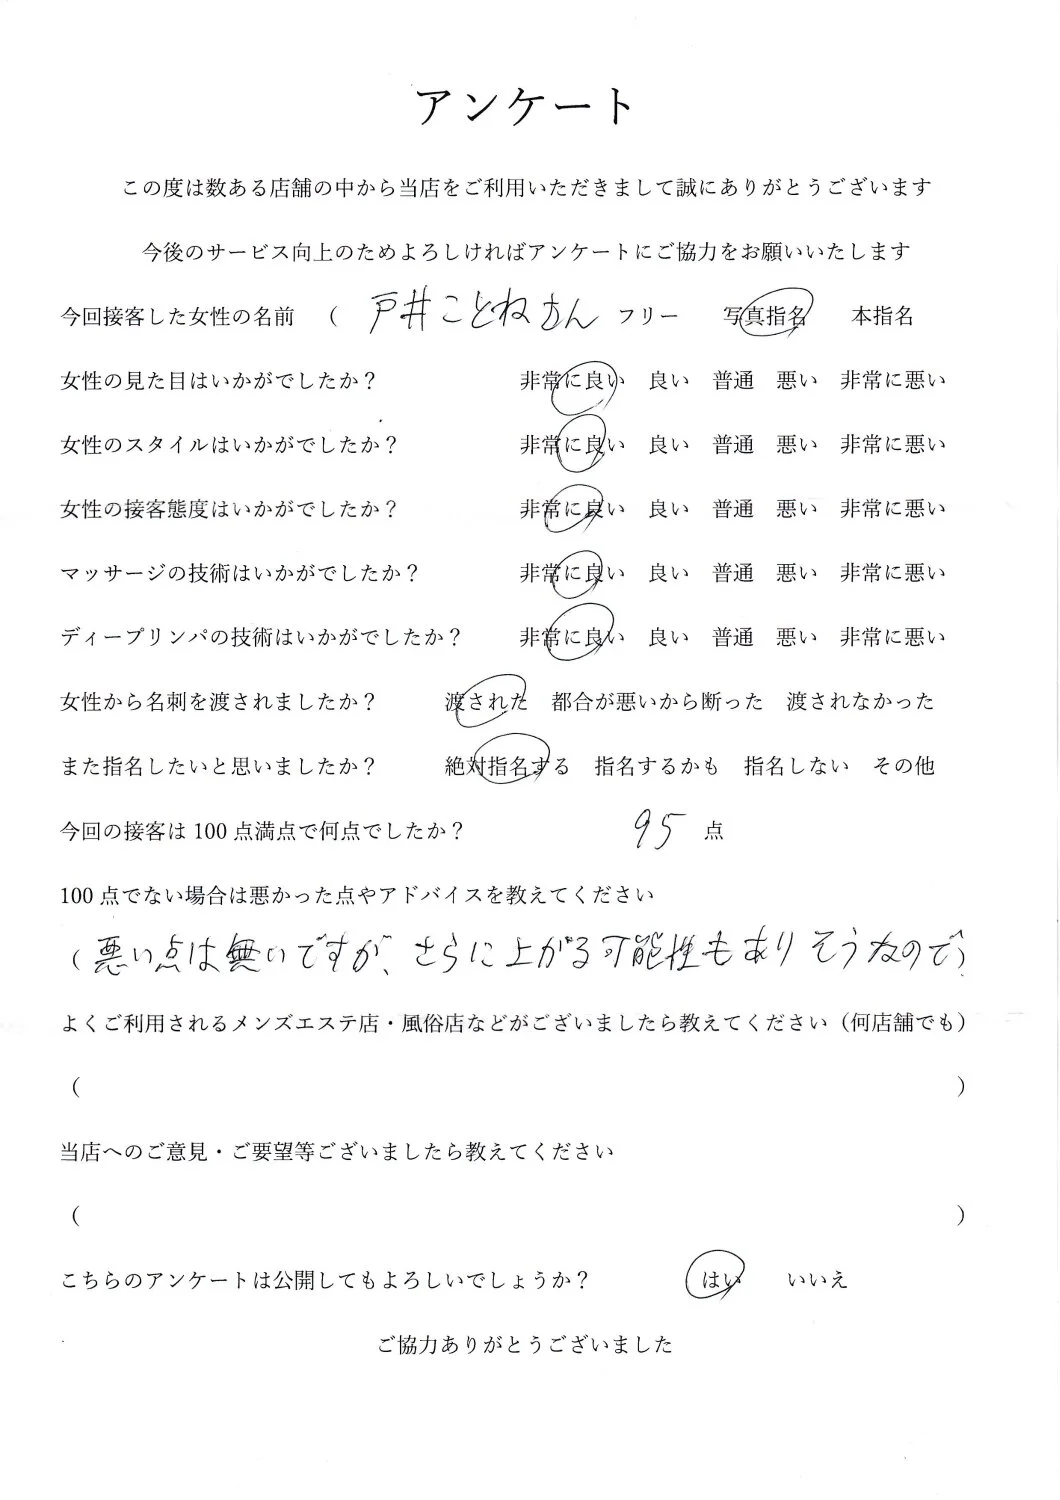 アンケート
この度は数ある店舗の中から当店をご利用いただきまして誠にありがとうございます
今後のサービス向上のためよろしければアンケートにご協力をお願いいたします
今回接客した女性の名前 ( 戸井ことねさん フリー 写真指名 本指名
女性の見た目はいかがでしたか？ 非常に良い 良い 普通 悪い 非常に悪い
女性のスタイルはいかがでしたか？ 非常に良い 良い 普通 悪い 非常に悪い
女性の接客態度はいかがでしたか？ 非常に良い 良い 普通 悪い 非常に悪い
マッサージの技術はいかがでしたか？ 非常に良い 良い 普通 悪い 非常に悪い
ディープリンパの技術はいかがでしたか？ 非常に良い 良い 普通 悪い 非常に悪い
女性から名刺を渡されましたか？ 渡された 都合が悪いから断った 渡されなかった
また指名したいと思いましたか？ 絶対指名する 指名するかも 指名しない その他
今回の接客は 100 点満点で何点でしたか？ 95 点
100 点でない場合は悪かった点やアドバイスを教えてください
( 悪い点は無いですが、さらに上がる可能性もありそうなので )
よくご利用されるメンズエステ店・風俗店などがございましたら教えてください（何店舗でも）
( )
当店へのご意見・ご要望等ございましたら教えてください
( )
こちらのアンケートは公開してもよろしいでしょうか？ はい いいえ
ご協力ありがとうございました